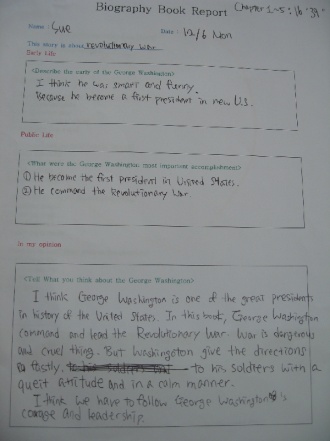 Biography Book Report Chapter 1~5: 16~39
Name: Sue Date: 12/6 Mon
This story is about revolutionary war
Early Life
<Describe the early of the George Washington>
I think he was smart and funny.
Because he become a first president in new U.S.
Public Life
<What were the George Washington most important accomplishment>
① He become the first president in United States.
② He command the Revolutionary War.
In my opinion
<Tell What you think about the George Washington>
I think George Washington is one of the great presidents
in history of the United States. In this book, George Washington
command and lead the Revolutionary War. War is dangerous
and cruel thing. But Washington give the directions
fastly. to his soldiers with a
queit attitude and in a calm manner.
I think we have to follow George Washington's
corage and leadership.